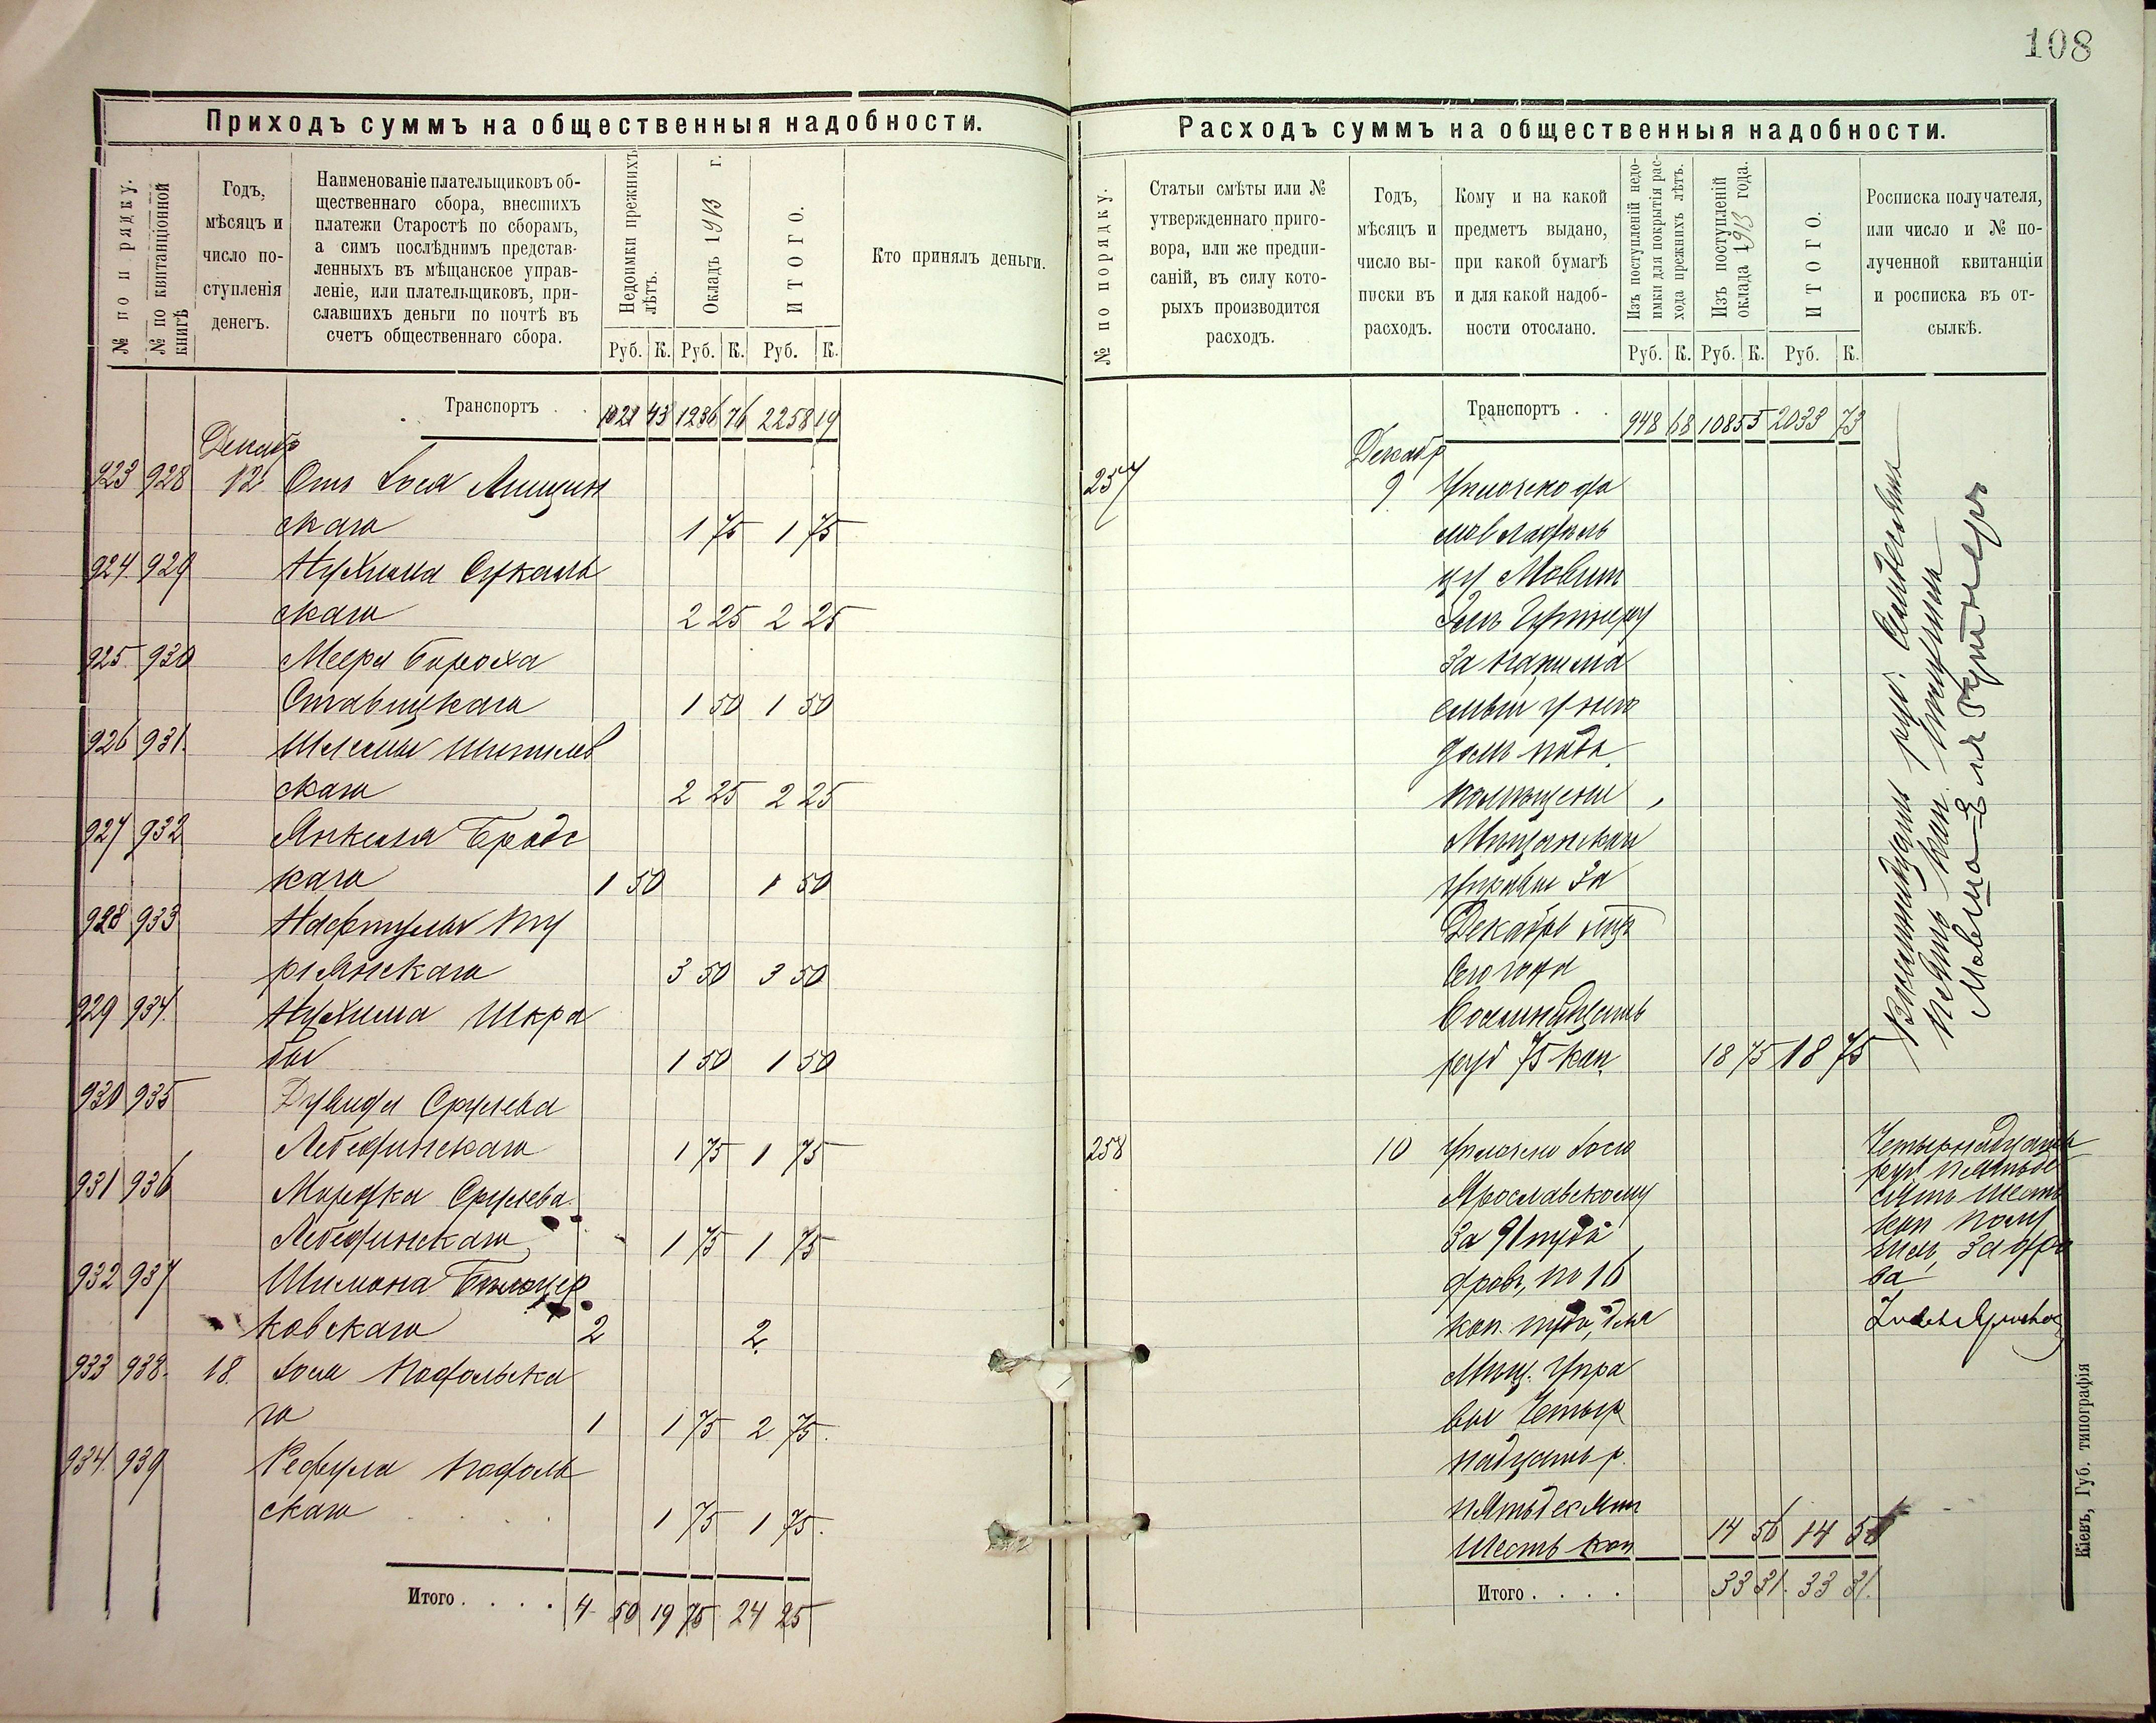 108
Приходъ суммъ на общественныя надобности.
№ по порядку.
№ по квитанціонной книгѣ
Годъ,
мѣсяцъ и
число по-
ступленія
денегъ.
Наименованіе плательщиковъ об-
щественнаго сбора, внесшихъ
платежи Старостѣ по сборамъ,
а симъ послѣднимъ представ-
ленныхъ въ мѣщанское управ-
леніе, или плательщиковъ, при-
славшихъ деньги по почтѣ въ
счетъ общественнаго сбора.
Недоимки прежнихъ
лѣтъ.
Окладъ 1913 г.
ИТОГО.
Кто принялъ деньги.
Руб. К. Руб. К. Руб. К.
Транспортъ . . 1021 43 1236 76 2258 19
Декабр
923 928 12 Отъ Іося Лищин
скаго 1 75 1 75
924 929 Нухима Сукаль
скаго 2 25 2 25
925 930 Меера Бороха
Ставицкаго 1 50 1 50
926 931.
скаго 2 25 2 25
927 932 Янкеля Бродс
каго 1 50 1 50
928 933 Нафтулы Ту
рьянскаго 3 50 3 50
929 934. Нухима Шкра
бы 1 50 1 50
930 935 Дувида Срулева
Лебединскаго 1 75 1 75
931 936 Мордка Срулева
Лебединскаго 1 75 1 75
932 937 Шимона Бѣлоцер
ковскаго 2 2.
933 938. 18. Іося Подольска
го 1 1 75 2 75.
934. 939 Подоль
скаго . . . . 1 75 1 75.
Итого . . . . 4 50 19 75 24 25
Расходъ суммъ на общественныя надобности.
№ по порядку.
Статьи смѣты или №
утвержденнаго приго-
вора, или же предпи-
саній, въ силу кото-
рыхъ производится
расходъ.
Годъ,
мѣсяцъ и
число вы-
писки въ
расходъ.
Кому и на какой
предметъ выдано,
при какой бумагѣ
и для какой надоб-
ности отослано.
Изъ поступленій недо-
имки для покрытія рас-
хода прежнихъ лѣтъ.
Изъ поступленій
оклада 1913 года.
ИТОГО.
Росписка получателя,
или число и № по-
лученной квитанціи
и росписка въ от-
сылкѣ.
Руб. К. Руб. К. Руб. К.
Транспортъ . . 948 68 1085 5 2033 73
Декабр
257 9 Уплочено до
мовладѣль
цу Мовши
Элю Гутнеру
за нанима
емый у него
домъ подъ
помѣщеніе
Мѣщанской
Управы за
Декабрь мѣс
сего года
Восемнадцать
руб 75 коп. 18 75 18 75
Восемнадцать руб. Семдесятъ
пять коп. получилъ
Мовша-Эля Гутнеръ
258 10 Уплочено Іосю
Ярославскому
за 91 пудъ
дровъ, по 16
коп. пудъ, для
Мѣщ. Упра
вы Четыр
надцать р.
пятьдесятъ
шесть коп 14 56 14 56
Четырнадцать
руб. пятьде
сятъ шесть
коп. полу
чилъ, за дро
ва
Итого . . . . 33 31. 33 31.
Кіевъ, Губ. типографія